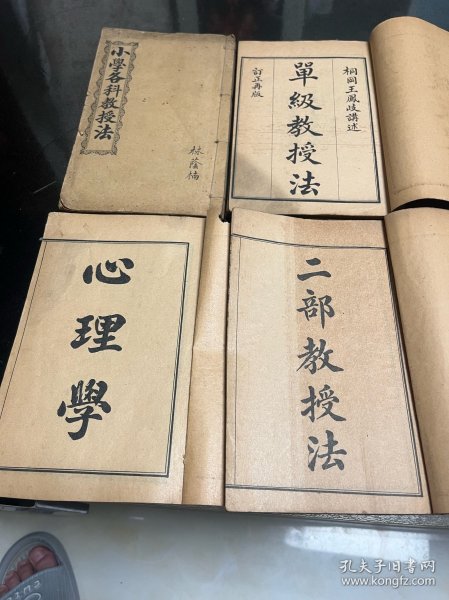 小學各科教授法
林蔭楠
桐岡王鳳岐講述
單級教授法
訂正再版
心理學
二部教授法
孔夫子旧书网
www.kongfz.com